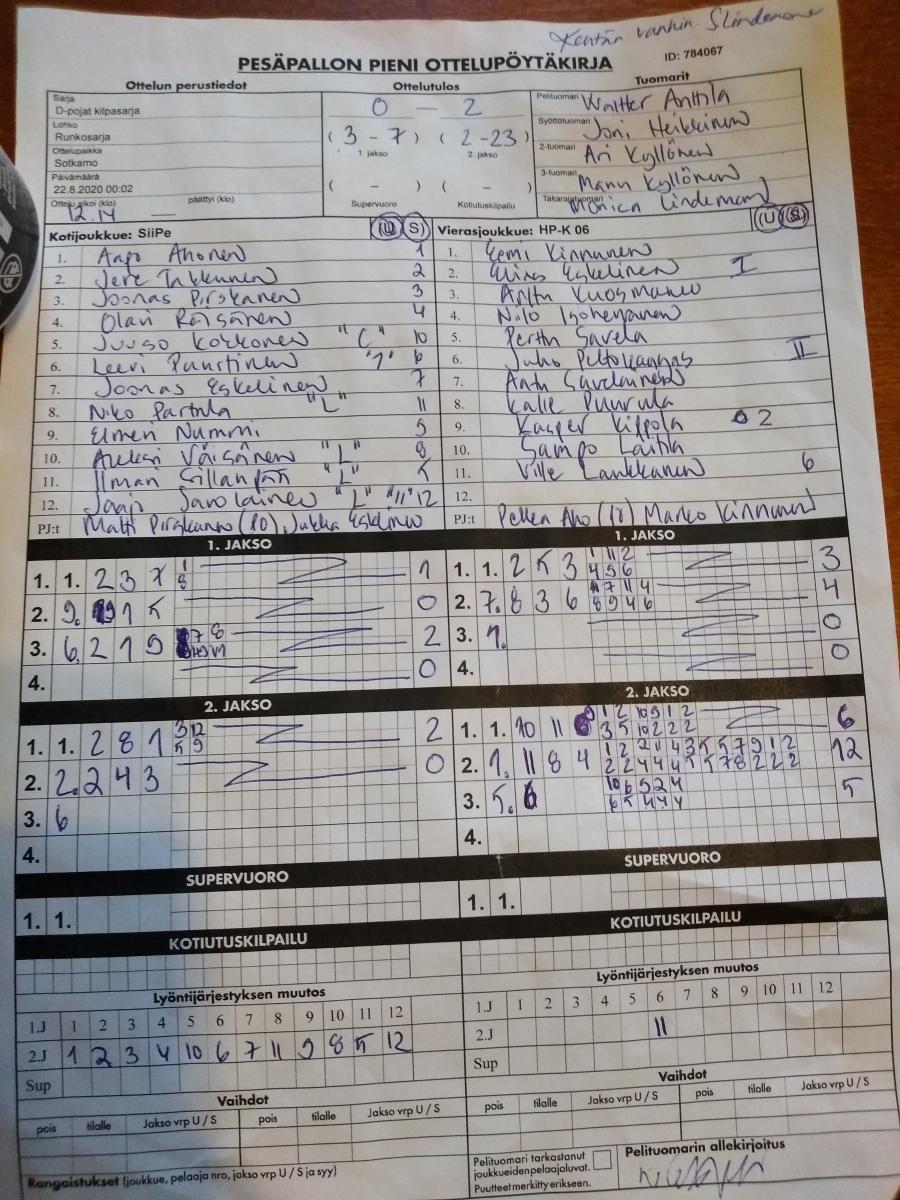 Kentän vanhin. S Lindeman
PESÄPALLON PIENI OTTELUPÖYTÄKIRJA
ID: 784067
Ottelun perustiedot
Ottelutulos
Tuomarit
Sarja
D-pojat kilpasarja
Lohko
Runkosarja
Ottelupaikka
Sotkamo
Päivämäärä
22.8.2020 00:02
Ottelu alkoi (klo) 12.14 päättyi (klo) —
0 — 2
(3 - 7) (2 - 23)
1. jakso 2. jakso
( - ) ( - )
Supervuoro Kotiutuskilpailu
Pelituomari Waltter Anttila
Syöttötuomari Joni Heikkinen
2-tuomari Ari Kyllönen
3-tuomari Manu Kyllönen
Takarajatuomari Monica Lindeman
Kotijoukkue: SiiPe (U S)
1. Ahonen 1
2. Jere 2
3. Joonas Pirskanen 3
4. Olavi Räisänen 4
5. Juuso Korkonen "C" 10
6. Leevi Puurtinen "1" 6
7. Joonas Eskelinen 7
8. Niko Parttila "L" 11
9. Elmeri Nummi 9
10. Aleksi Väisänen "L" 8
11. Ilmari Sillanpää "L" 5
12. Savolainen "L" "11" 12
PJ:t Matti (PO), Jukka Eskelinen
Vierasjoukkue: HP-K 06 (U S)
1. Eemi Kinnunen
2. Eskelinen I
3. Anttu Kuosmanen
4. Niilo Isohepanen
5. Perttu Savela
6. Juho Peltokangas II
7. Anttu Savolainen
8. Kalle Puurula
9. Kasper Kippola 2
10. Sampo Laitila
11. Ville Lankkanen 6
12.
PJ:t Pekka Aho (10) Marko Kinnunen
1. JAKSO
1. 1. 2 3 7 1
2. 9. 1 5 0
3. 6. 2 1 9 2
4. 0
1. JAKSO
1. 1. 2 5 3 1 11 2 3
4 5 6
2. 7. 8 3 6 4
3. 1. 0
4. 0
2. JAKSO
1. 1. 2 8 1 3 12 2
5 9
2. 2. 2 4 3 0
3. 6
4.
2. JAKSO
1. 1. 10 11 9 1 2 10 9 1 2 6
3 5 10 2 2 2
2. 1. 11 8 4 1 2 2 11 4 3 5 5 7 9 1 2 12
2 2 4 4 4 5 5 7 8 2 2 2
3. 5. 6 10 6 5 2 4 5
6 5 4 4 4
4.
SUPERVUORO
1. 1.
SUPERVUORO
1. 1.
KOTIUTUSKILPAILU
KOTIUTUSKILPAILU
Lyöntijärjestyksen muutos
1.J 1 2 3 4 5 6 7 8 9 10 11 12
2.J 1 2 3 4 10 6 7 11 9 8 5 12
Sup
Lyöntijärjestyksen muutos
1.J 1 2 3 4 5 6 7 8 9 10 11 12
2.J 11
Sup
Vaihdot
pois tilalle Jakso vrp U / S pois tilalle Jakso vrp U / S
Vaihdot
pois tilalle Jakso vrp U / S pois tilalle Jakso vrp U / S
Rangaistukset (joukkue, pelaaja nro, jakso vrp U / S ja syy)
Pelituomari tarkastanut
joukkueiden pelaajaluvat.
Puutteet merkitty erikseen.
Pelituomarin allekirjoitus